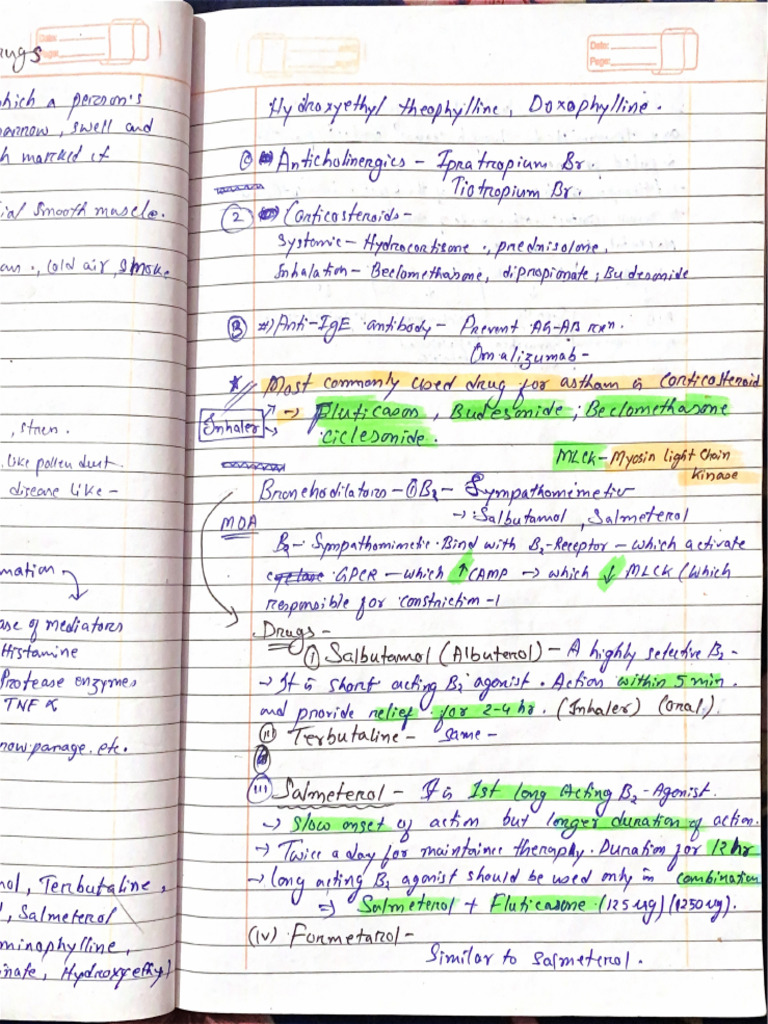 rugs
which a person's
narrow, swell and
h marked it
ial smooth muscle.
, cold air, smoke
, stren.
like pollen dust.
disease like -
mation
ase of mediators
Histamine
Protease enzymes
TNF α
now panage. etc.
nol, Terbutaline,
l, Salmeterol
minophylline,
inate, Hydroxyethyl
Date:
Page:
Date:
Page:
Hydroxyethyl theophylline, Doxophylline.
Anticholinergics - Ipratropium Br.
Tiotropium Br.
(2) Corticosteroids-
Systemic - Hydrocortisone., prednisolone,
Inhalation - Beclomethasone, dipropionate, Budesonide
(3) #) Anti-IgE antibody - Prevent AG-AB rxn.
Omalizumab-
* Most commonly used drug for astham is corticosteroid
Inhaler → Fluticason, Budesonide; Beclomethasone
Ciclesonide.
MLCK - Myosin light chain
kinase
Bronchodilators - (i) B2 - Sympathomimetic
→ Salbutamol, Salmeterol
MOA
B2 - Sympathomimetic. Bind with B2-Receptor - which activate
GPCR - which ↑ CAMP → which ↓ MLCK (which
responsible for constrictim -)
Drugs -
(i) Salbutamol (Albuterol) - A highly selective B2 -
→ It is short acting B2 agonist. Action within 5 min.
and provide relief for 2-4 hr. (Inhaler) (oral).
(ii) Terbutaline - Same -
(iii) Salmeterol - It is 1st long Acting B2-Agonist.
→ Slow onset of action but longer duration of action.
→ Twice a day for maintaince theraphy. Duration for 12 hr
→ long acting B2 agonist should be used only in combination
⇒ Salmeterol + Fluticasone (125 ug) (1250 ug).
(iv) Formetarol -
Similar to salmeterol.